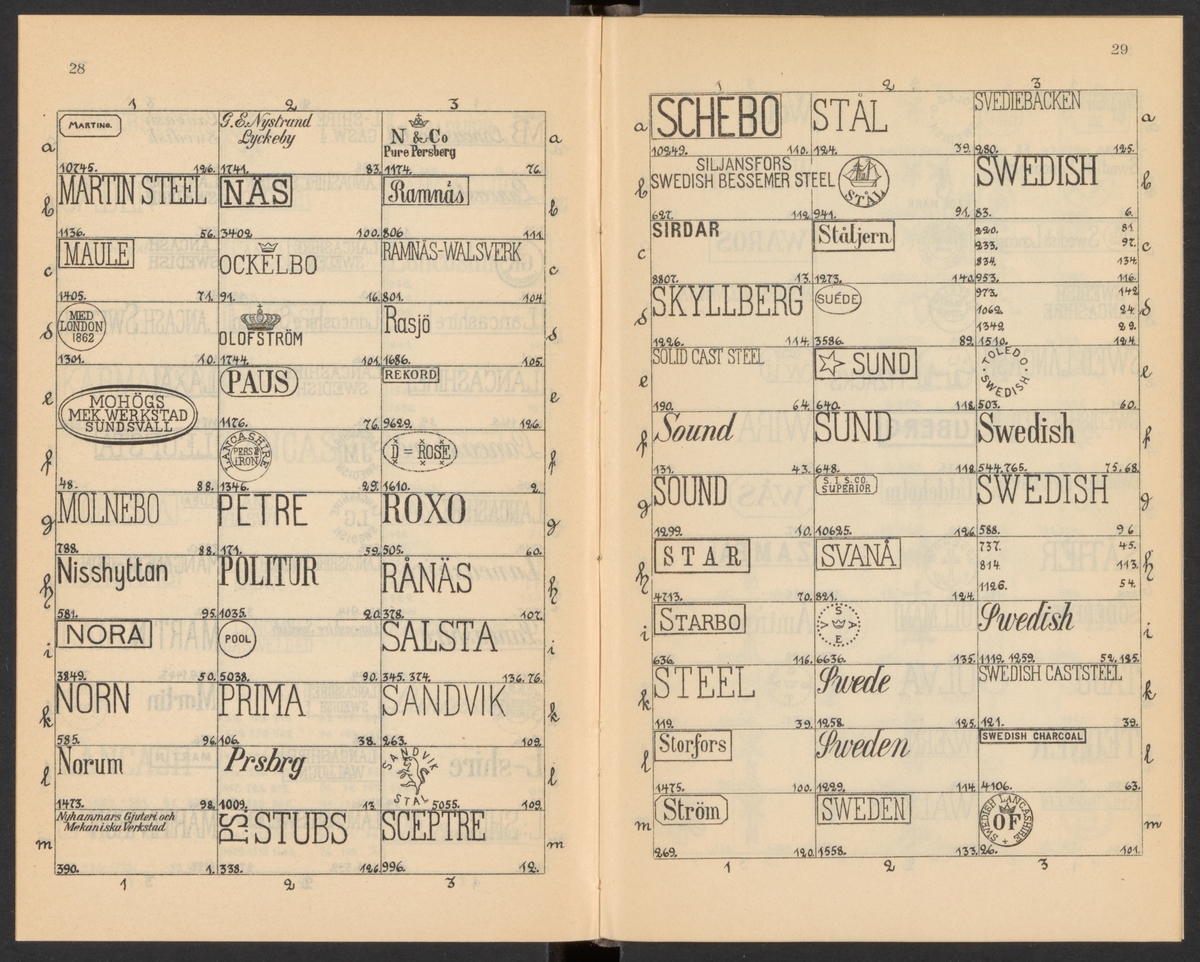 28
1 2 3
a
MARTINO.
10745. 126.
G.E.Nystrand
Lyckeby
1741. 83.
N & Co
Pure Persberg
1174. 76.
a
b
MARTIN STEEL
1136. 56.
NÄS
3402. 100.
Ramnäs
806 111.
b
c
MAULE
1405. 71.
OCKELBO
91. 16.
RAMNÄS-WALSVERK
801. 104.
c
d
MED
LONDON
1862
1301. 10.
OLOFSTRÖM
1744. 101.
Rasjö
1686. 105.
d
e
MOHÖGS
MEK.WERKSTAD
SUNDSVALL
48. 88.
PAUS
1176. 76.
REKORD
9629. 126.
e
f
LANCASHIRE
PERSB
IRON
1346. 29.
D = ROSE
1610. 2.
f
g
MOLNEBO
788. 88.
PETRE
171. 59.
ROXO
505. 60.
g
h
Nisshyttan
581. 95.
POLITUR
1035. 20.
RÅNÄS
378. 107.
h
i
NORA
3849. 50.
POOL
5038. 90.
SALSTA
345. 374. 136.76.
i
k
NORN
585. 96.
PRIMA
106. 38.
SANDVIK
263. 109.
k
l
Norum
1473. 98.
Prsbrg
1009. 13
SANDVIK
STÅL
5055. 109.
l
m
Nyhammars Gjuteri och
Mekaniska Verkstad
390. 1.
P.S STUBS
338. 126.
SCEPTRE
996. 12.
m
1 2 3
29
1 2 3
a
SCHEBO
10249. 110.
STÅL
124. 39.
SVEDIEBACKEN
280. 125.
a
b
SILJANSFORS
SWEDISH BESSEMER STEEL
627. 112.
STÅL
941. 91.
SWEDISH
83. 6.
b
c
SIRDAR
8807. 13.
Ståljern
1273. 140.
220. 81.
233. 97.
834. 134.
953. 116.
c
d
SKYLLBERG
1226. 114.
SUÉDE
3586. 89.
973. 142
1062. 24.
1342. 29.
1510. 124.
d
e
SOLID CAST STEEL
190. 64.
SUND
640. 118.
TOLEDO
SWEDISH
503. 60.
e
f
Sound
131. 43.
SUND
648. 118.
Swedish
544.765. 75.68.
f
g
SOUND
1299. 10.
S.I.S.CO.
SUPERIOR
10625. 126.
SWEDISH
588. 96
g
h
STAR
4713. 70.
SVANÅ
821. 124.
737. 45.
814. 113.
1126. 54.
h
i
STARBO
636. 116.
S
V A
E.
6636. 135.
Swedish
1119. 1259. 52.125.
i
k
STEEL
119. 39.
Swede
1258. 125.
SWEDISH CASTSTEEL
121. 39.
k
l
Storfors
1475. 100.
Sweden
1229. 114.
SWEDISH CHARCOAL
4106. 63.
l
m
Ström
269. 120.
SWEDEN
1558. 133.
SWEDISH LANCASHIRE
OF
26. 101.
m
1 2 3